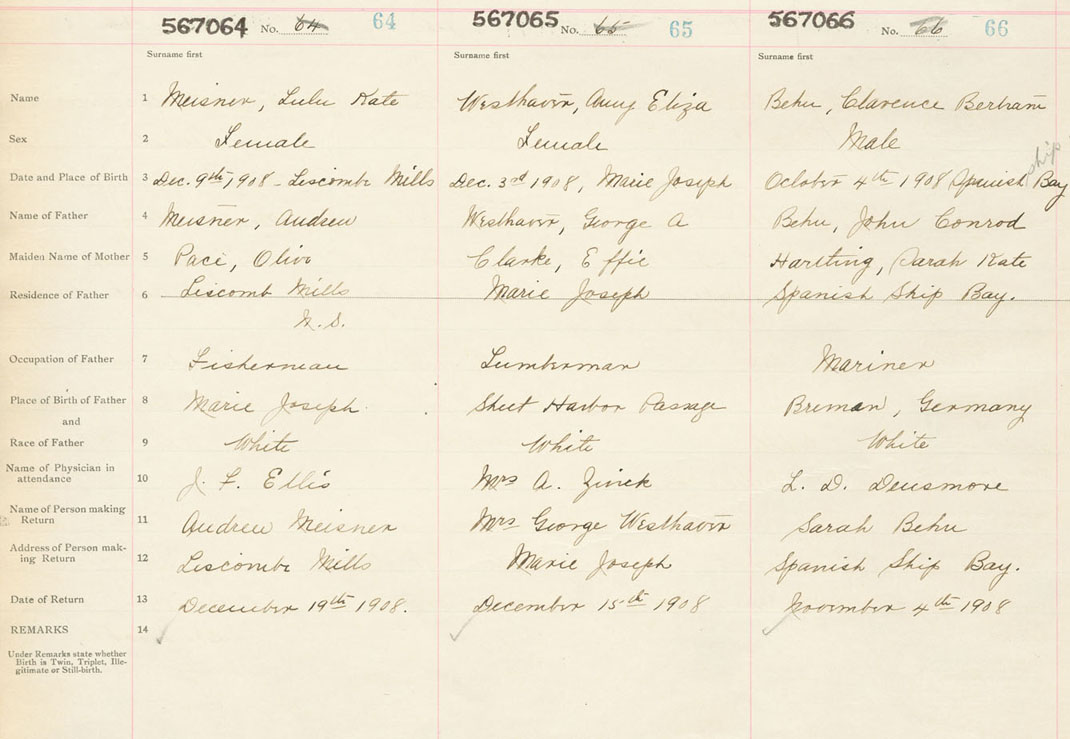 567064 No. 64 64 567065 No. 65 65 567066 No. 66 66
Surname first Surname first Surname first
Name 1 Meisner, Lulu Kate Westhaver, Amy Eliza Behu, Clarence Bertram
Sex 2 Female Female Male
ship
Date and Place of Birth 3 Dec. 9th, 1908 - Liscombe Mills Dec. 3rd 1908, Marie Joseph October 4th 1908 Spanish Bay
Name of Father 4 Meisner, Andrew Westhaver, George A Behu, John Conrod
Maiden Name of Mother 5 Pace, Olive Clarke, Effie Hartling, Sarah Kate
Residence of Father 6 Liscomb Mills Marie Joseph Spanish Ship Bay.
N.S.
Occupation of Father 7 Fisherman Lumberman Mariner
Place of Birth of Father 8 Marie Joseph Sheet Harbor Passage Breman, Germany
and
Race of Father 9 White White White
Name of Physician in
attendance 10 J. F. Ellis Mrs A. Zwick L. D. Densmore
Name of Person making
Return 11 Andrew Meisner Mrs George Westhaver Sarah Behu
Address of Person mak-
ing Return 12 Liscombe Mills Marie Joseph Spanish Ship Bay.
Date of Return 13 December 19th 1908. December 15th 1908 November 4th 1908
REMARKS 14
Under Remarks state whether
Birth is Twin, Triplet, Ille-
gitimate or Still-birth.